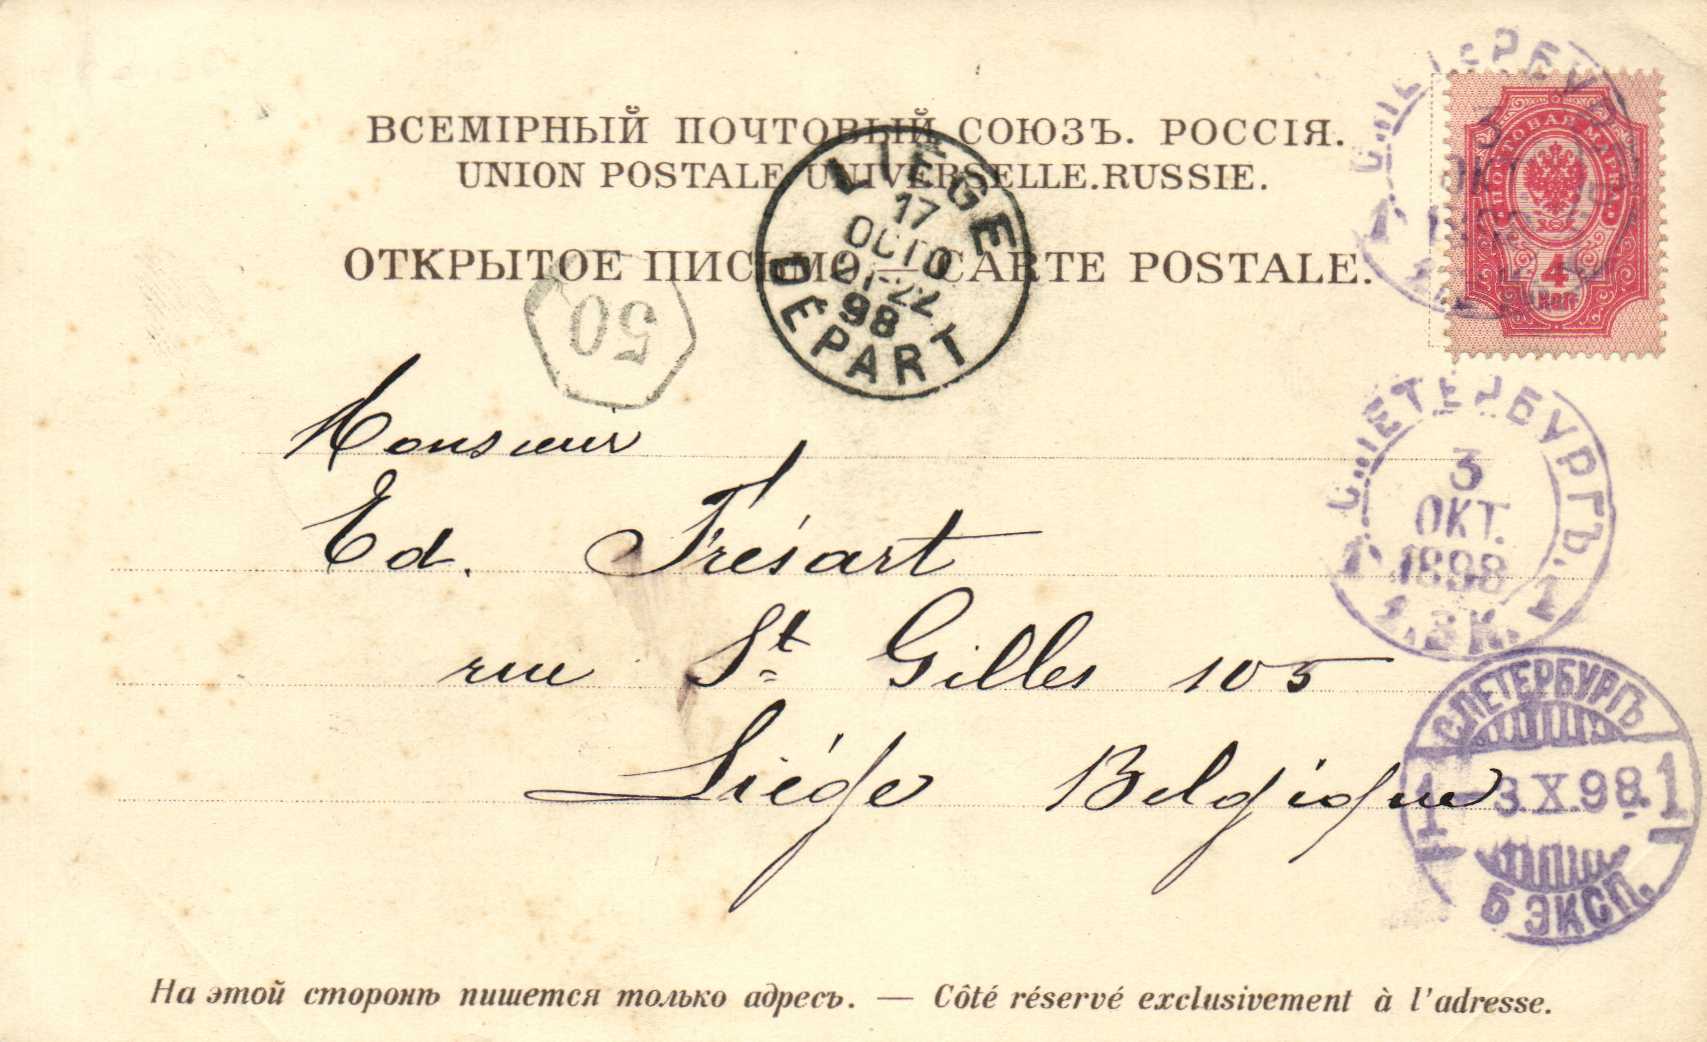 ВСЕМІРНЫЙ ПОЧТОВЫЙ СОЮЗЪ. РОССІЯ.
UNION POSTALE UNIVERSELLE.RUSSIE.
ОТКРЫТОЕ ПИСЬМО — CARTE POSTALE.
LIEGE
17
OCTO
21-22
98
DEPART
50
С.ПЕТЕРБУРГЪ.
3
ОКТ
1
ПОЧТОВАЯ МАРКА
4
КОП
Monsieur
Ed. Frésart
rue St Gilles 105
Liége Belgique
С.ПЕТЕРБУРГЪ.
3
ОКТ.
1 1898 1
С.ПЕТЕРБУРГЪ
1 -3 X.98. 1
Б ЭКСП.
На этой сторонѣ пишется только адресъ. — Côté réservé exclusivement à l'adresse.